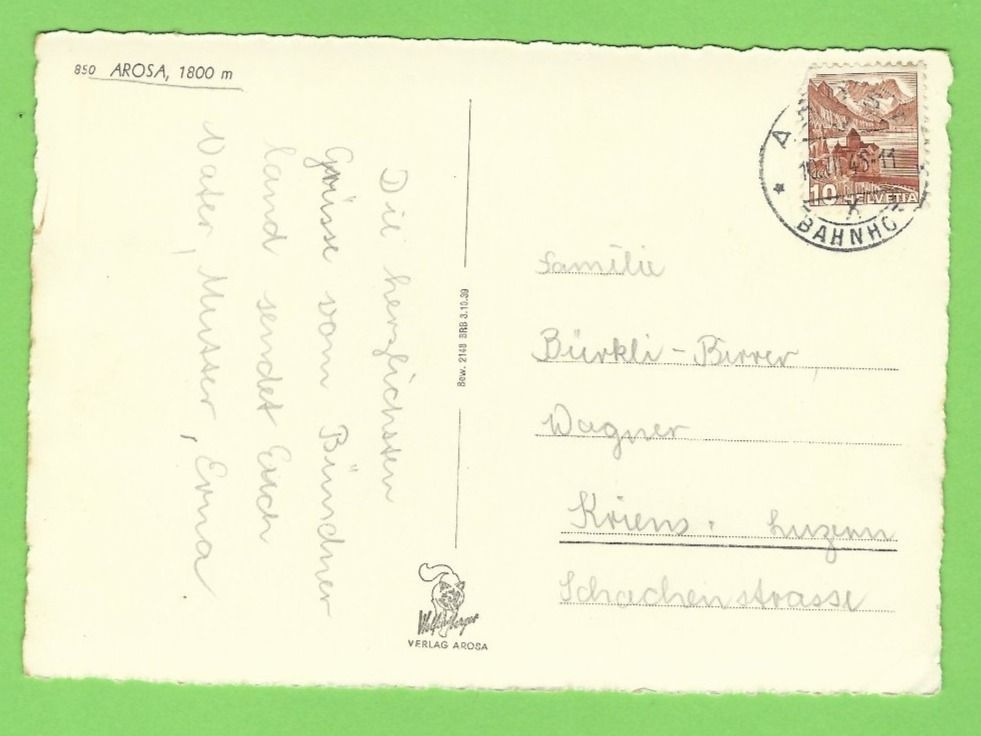 850 AROSA, 1800 m
Die herzlichsten
Grüsse vom Bündner
land sendet Euch
Vater, Mutter, Erna
Bew. 2148 BRB 3.10.39
VERLAG AROSA
10 HELVETIA
BAHNHOF
Familie
Bürkli - Birrer
Wagner
Kriens. Luzern
Schachenstrasse